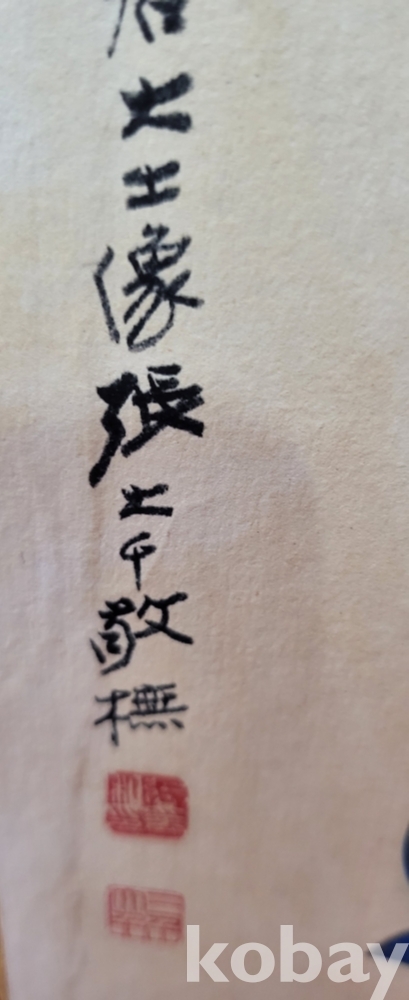 大士像張大千敬橅
kobay